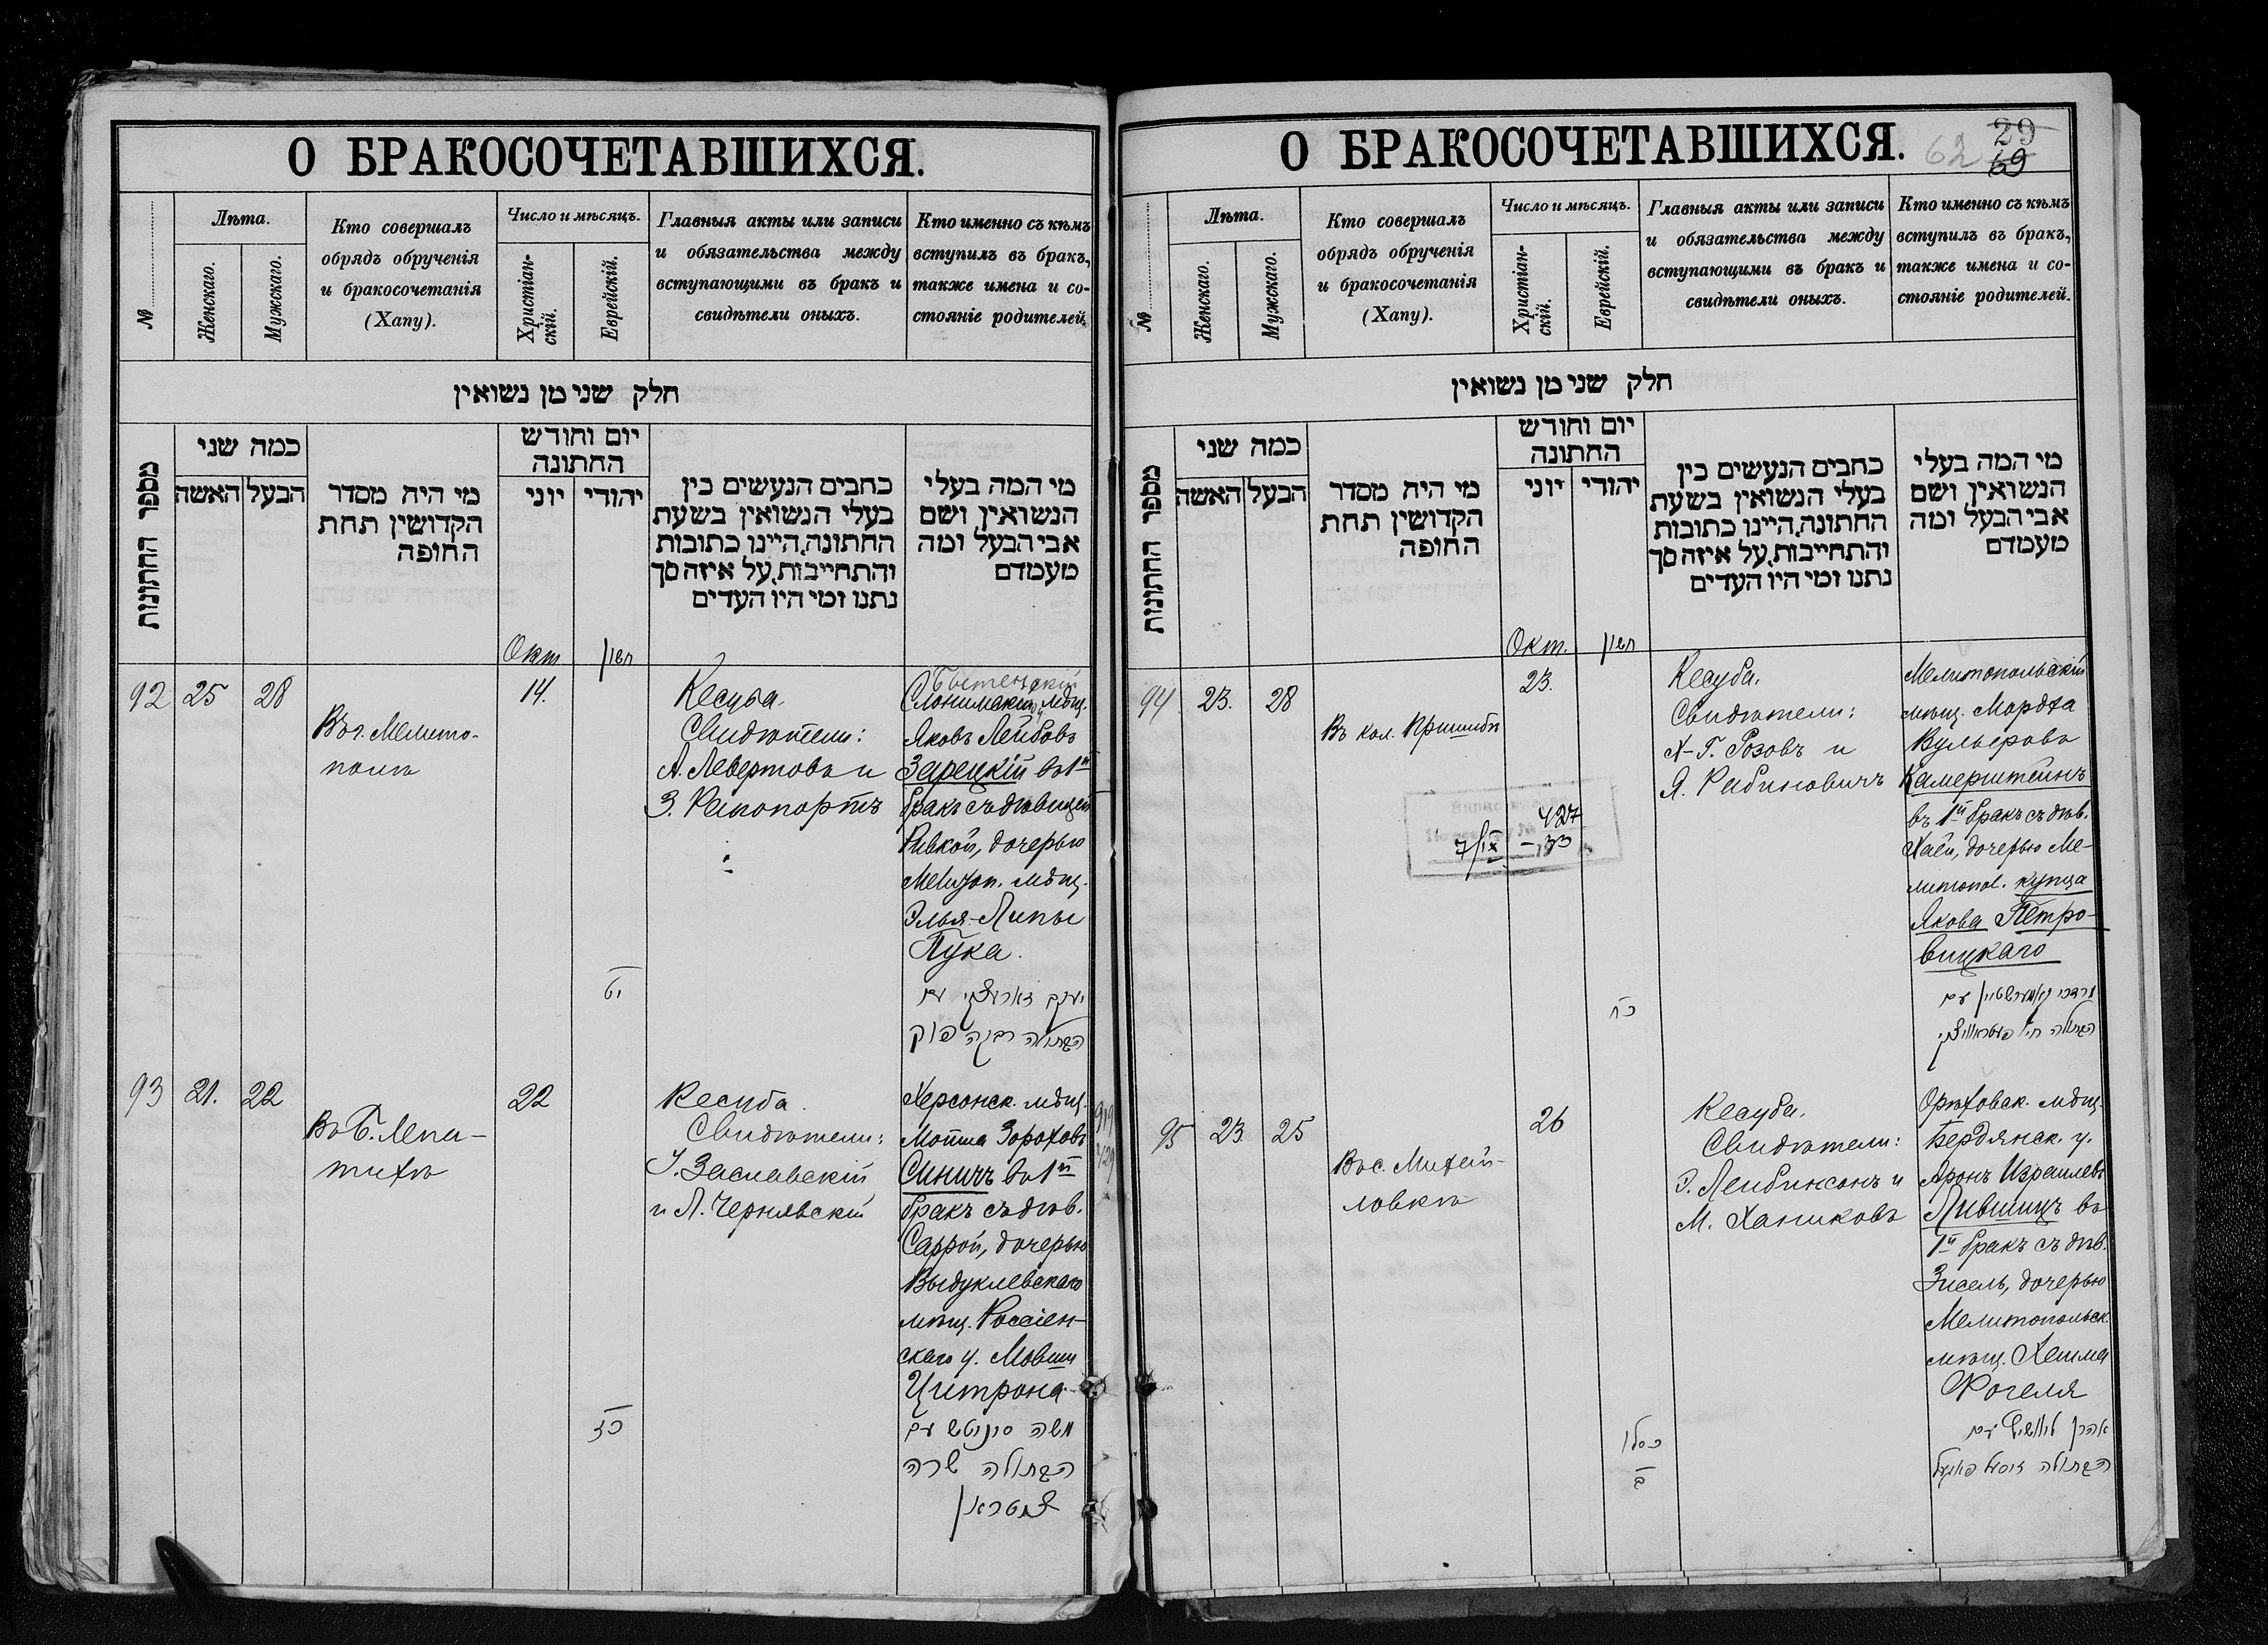 О БРАКОСОЧЕТАВШИХСЯ.
№
Лѣта.
Женскаго.
Мужскаго.
Кто совершалъ
обрядъ обрученія
и бракосочетанія
(Хапу).
Число и мѣсяцъ.
Христіан-
скій.
Еврейскій.
Главныя акты или записи
и обязательства между
вступающими въ бракъ и
свидѣтели оныхъ.
Кто именно съ кѣмъ
вступилъ въ бракъ,
также имена и со-
стояніе родителей.
חלק שני מן נשואין
מספר החתונות
כמה שני
האשה
הבעל
מי היה מסדר
הקדושין תחת
החופה
יום וחודש
החתונה
יוני
יהודי
כתבים הנעשים בין
בעלי הנשואין בשעת
החתונה, היינו כתובות
והתחייבות, על איזה סך
נתנו ומי היו העדים
מי המה בעלי
הנשואין ושם
אבי הבעל ומה
מעמדם
Окт
חשון
92
25
28
Въ г. Мелито-
полѣ
14.
יט
Кесуба.
Свидѣтели:
А. Левертовъ и
З. Рапопортъ
Бытенскій
Слонимскій мѣщ.
Яковъ Лейбовъ
Зарецкій въ 1й
бракъ съ дѣвицей
Ривкой, дочерью
Мелитоп. мѣщ.
Элья-Липы
Пука.
יעקב זארעצקי עם
הבתולה רבקה פוק
93
21.
22
Въ Б. Лепа-
тихѣ
22
כז
Кесуба.
Свидѣтели:
У. Заславскій
и Л. Чернявскій
Херсонск. мѣщ.
Мовша Зороховъ
Синичъ въ 1й
бракъ съ дѣв.
Саррой, дочерью
Выдуклевскаго
мѣщ. Россіен-
скаго у. Мовши
Цитрона
משה סיניטש עם
הבתולה שרה
ציטראן
О БРАКОСОЧЕТАВШИХСЯ.
62
29
69
№
Лѣта.
Женскаго.
Мужскаго.
Кто совершалъ
обрядъ обрученія
и бракосочетанія
(Хапу).
Число и мѣсяцъ.
Христіан-
скій.
Еврейскій.
Главныя акты или записи
и обязательства между
вступающими въ бракъ и
свидѣтели оныхъ.
Кто именно съ кѣмъ
вступилъ въ бракъ,
также имена и со-
стояніе родителей.
חלק שני מן נשואין
מספר החתונות
כמה שני
האשה
הבעל
מי היה מסדר
הקדושין תחת
החופה
יום וחודש
החתונה
יוני
יהודי
כתבים הנעשים בין
בעלי הנשואין בשעת
החתונה, היינו כתובות
והתחייבות, על איזה סך
נתנו ומי היו העדים
מי המה בעלי
הנשואין ושם
אבי הבעל ומה
מעמדם
Окт.
חשון
94
23.
28
Въ кол. Пришибъ
23.
427
7/IX - 33
כח
Кесуба.
Свидѣтели:
Х-Г. Розовъ и
Я. Рабиновичъ
Мелитопольскій
мѣщ. Мордха
Вульфовъ
Камерштейнъ
въ 1й бракъ съ дѣв.
Хаей, дочерью Ме-
литопол. купца
Якова Петро-
вицкаго
מרדכי קאמערשטיין עם
הבתולה חיה פעטראוויצקי
95
23
25
Въ с. Михай-
ловкѣ
26
כסלו
ב
Кесуба.
Свидѣтели:
Э. Лейбинсонъ и
М. Ханиковъ
Орѣховск. мѣщ.
Бердянск. у.
Аронъ Израилевъ
Лившицъ въ
1й бракъ съ дѣв.
Зисель, дочерью
Мелитопольск.
мѣщ. Хаима
Фогеля
אהרן ליוושיץ עם
הבתולה זיסל פאגעל